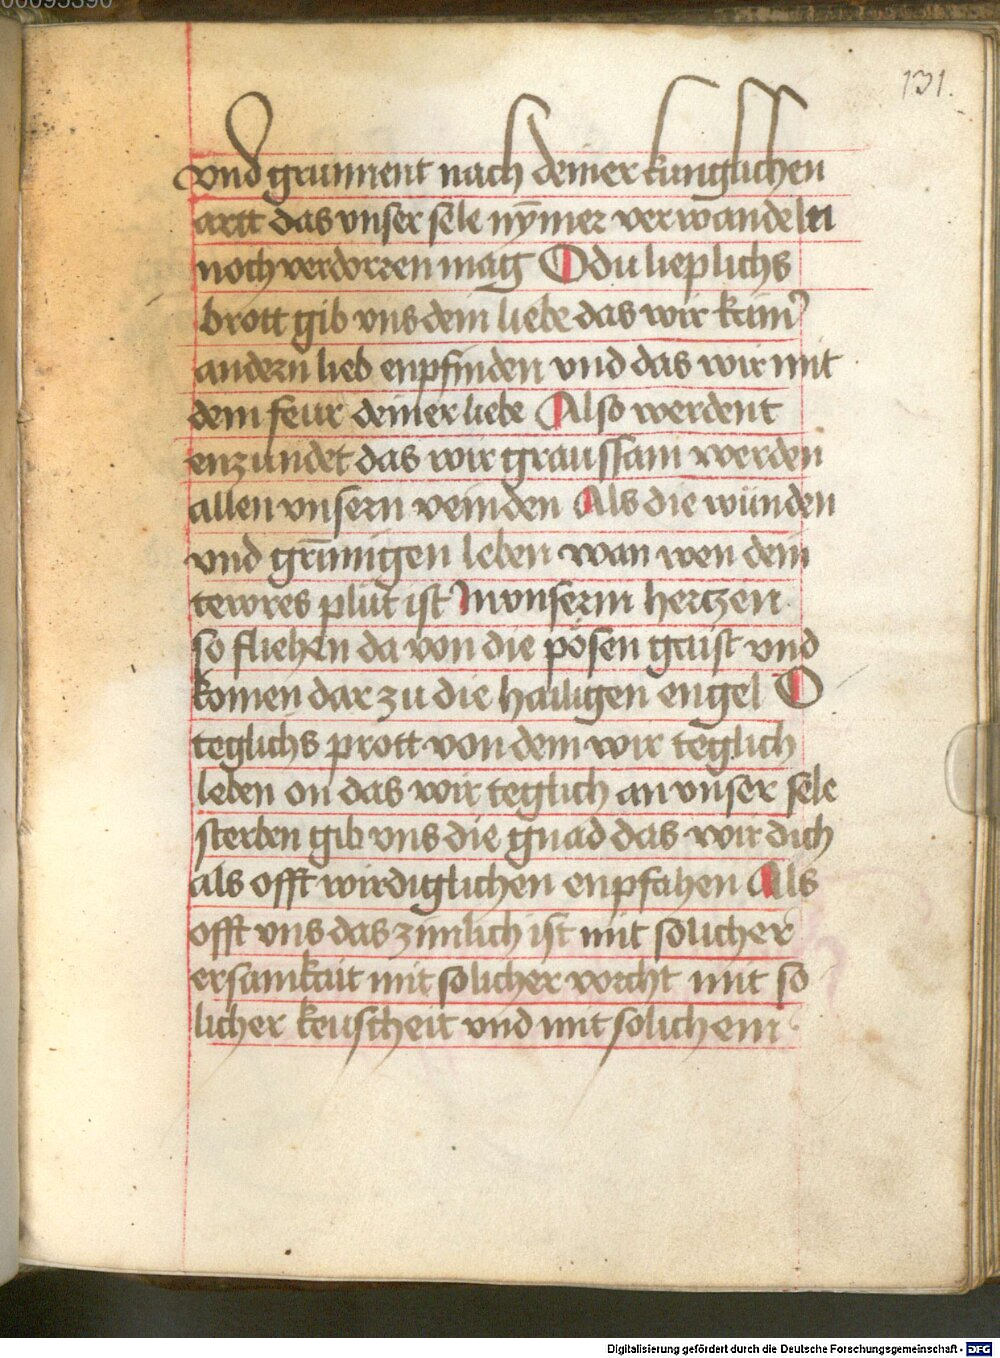 00095390
131.
vnd grunnent nach deiner kunglichen
artt das vnser sele nÿmer verwandeln
noch verdorren mag O du lieplichs
brott gib vns dein liebe das wir kain
andern lieb enpfinden vnd das wir mit
dem feur deiner liebe Also werdent
enzundet das wir graussam werden
allen vnsern veinden Als die wünden
vnd grünigen leben wan wen dein
tewres plut ist In vnserm hertzen
so fliehen da von die pösen gaist vnd
komen dar zu die hailigen engel O
teglichs prott von dem wir teglich
leben on das wir teglich an vnser sele
sterben gib vns die gnad das wir dich
als offt wirdiglichen enpfahen Als
offt vns das zimlich ist mit solicher
ersamkait mit solicher vorcht mit so
licher keuscheit vnd mit solichem
Digitalisierung gefördert durch die Deutsche Forschungsgemeinschaft - DFG